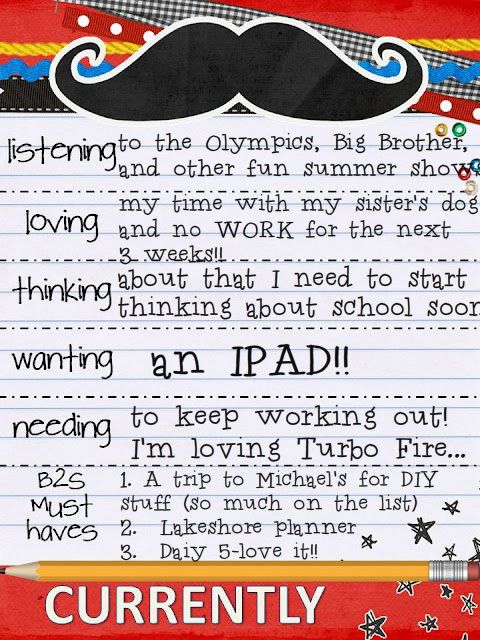 listening to the Olympics, Big Brother,
and other fun summer shows
loving my time with my sister's dog
and no WORK for the next
3 weeks!!
thinking about that I need to start
thinking about school soon
wanting an IPAD!!
needing to keep working out!
I'm loving Turbo Fire...
B2S Must haves
1. A trip to Michael's for DIY
stuff (so much on the list)
2. Lakeshore planner
3. Daiy 5-love it!!
CURRENTLY